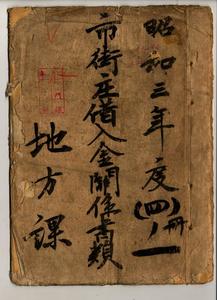 昭和三年度(四)冊ノ一
市街庄借入金関係書類
地方課